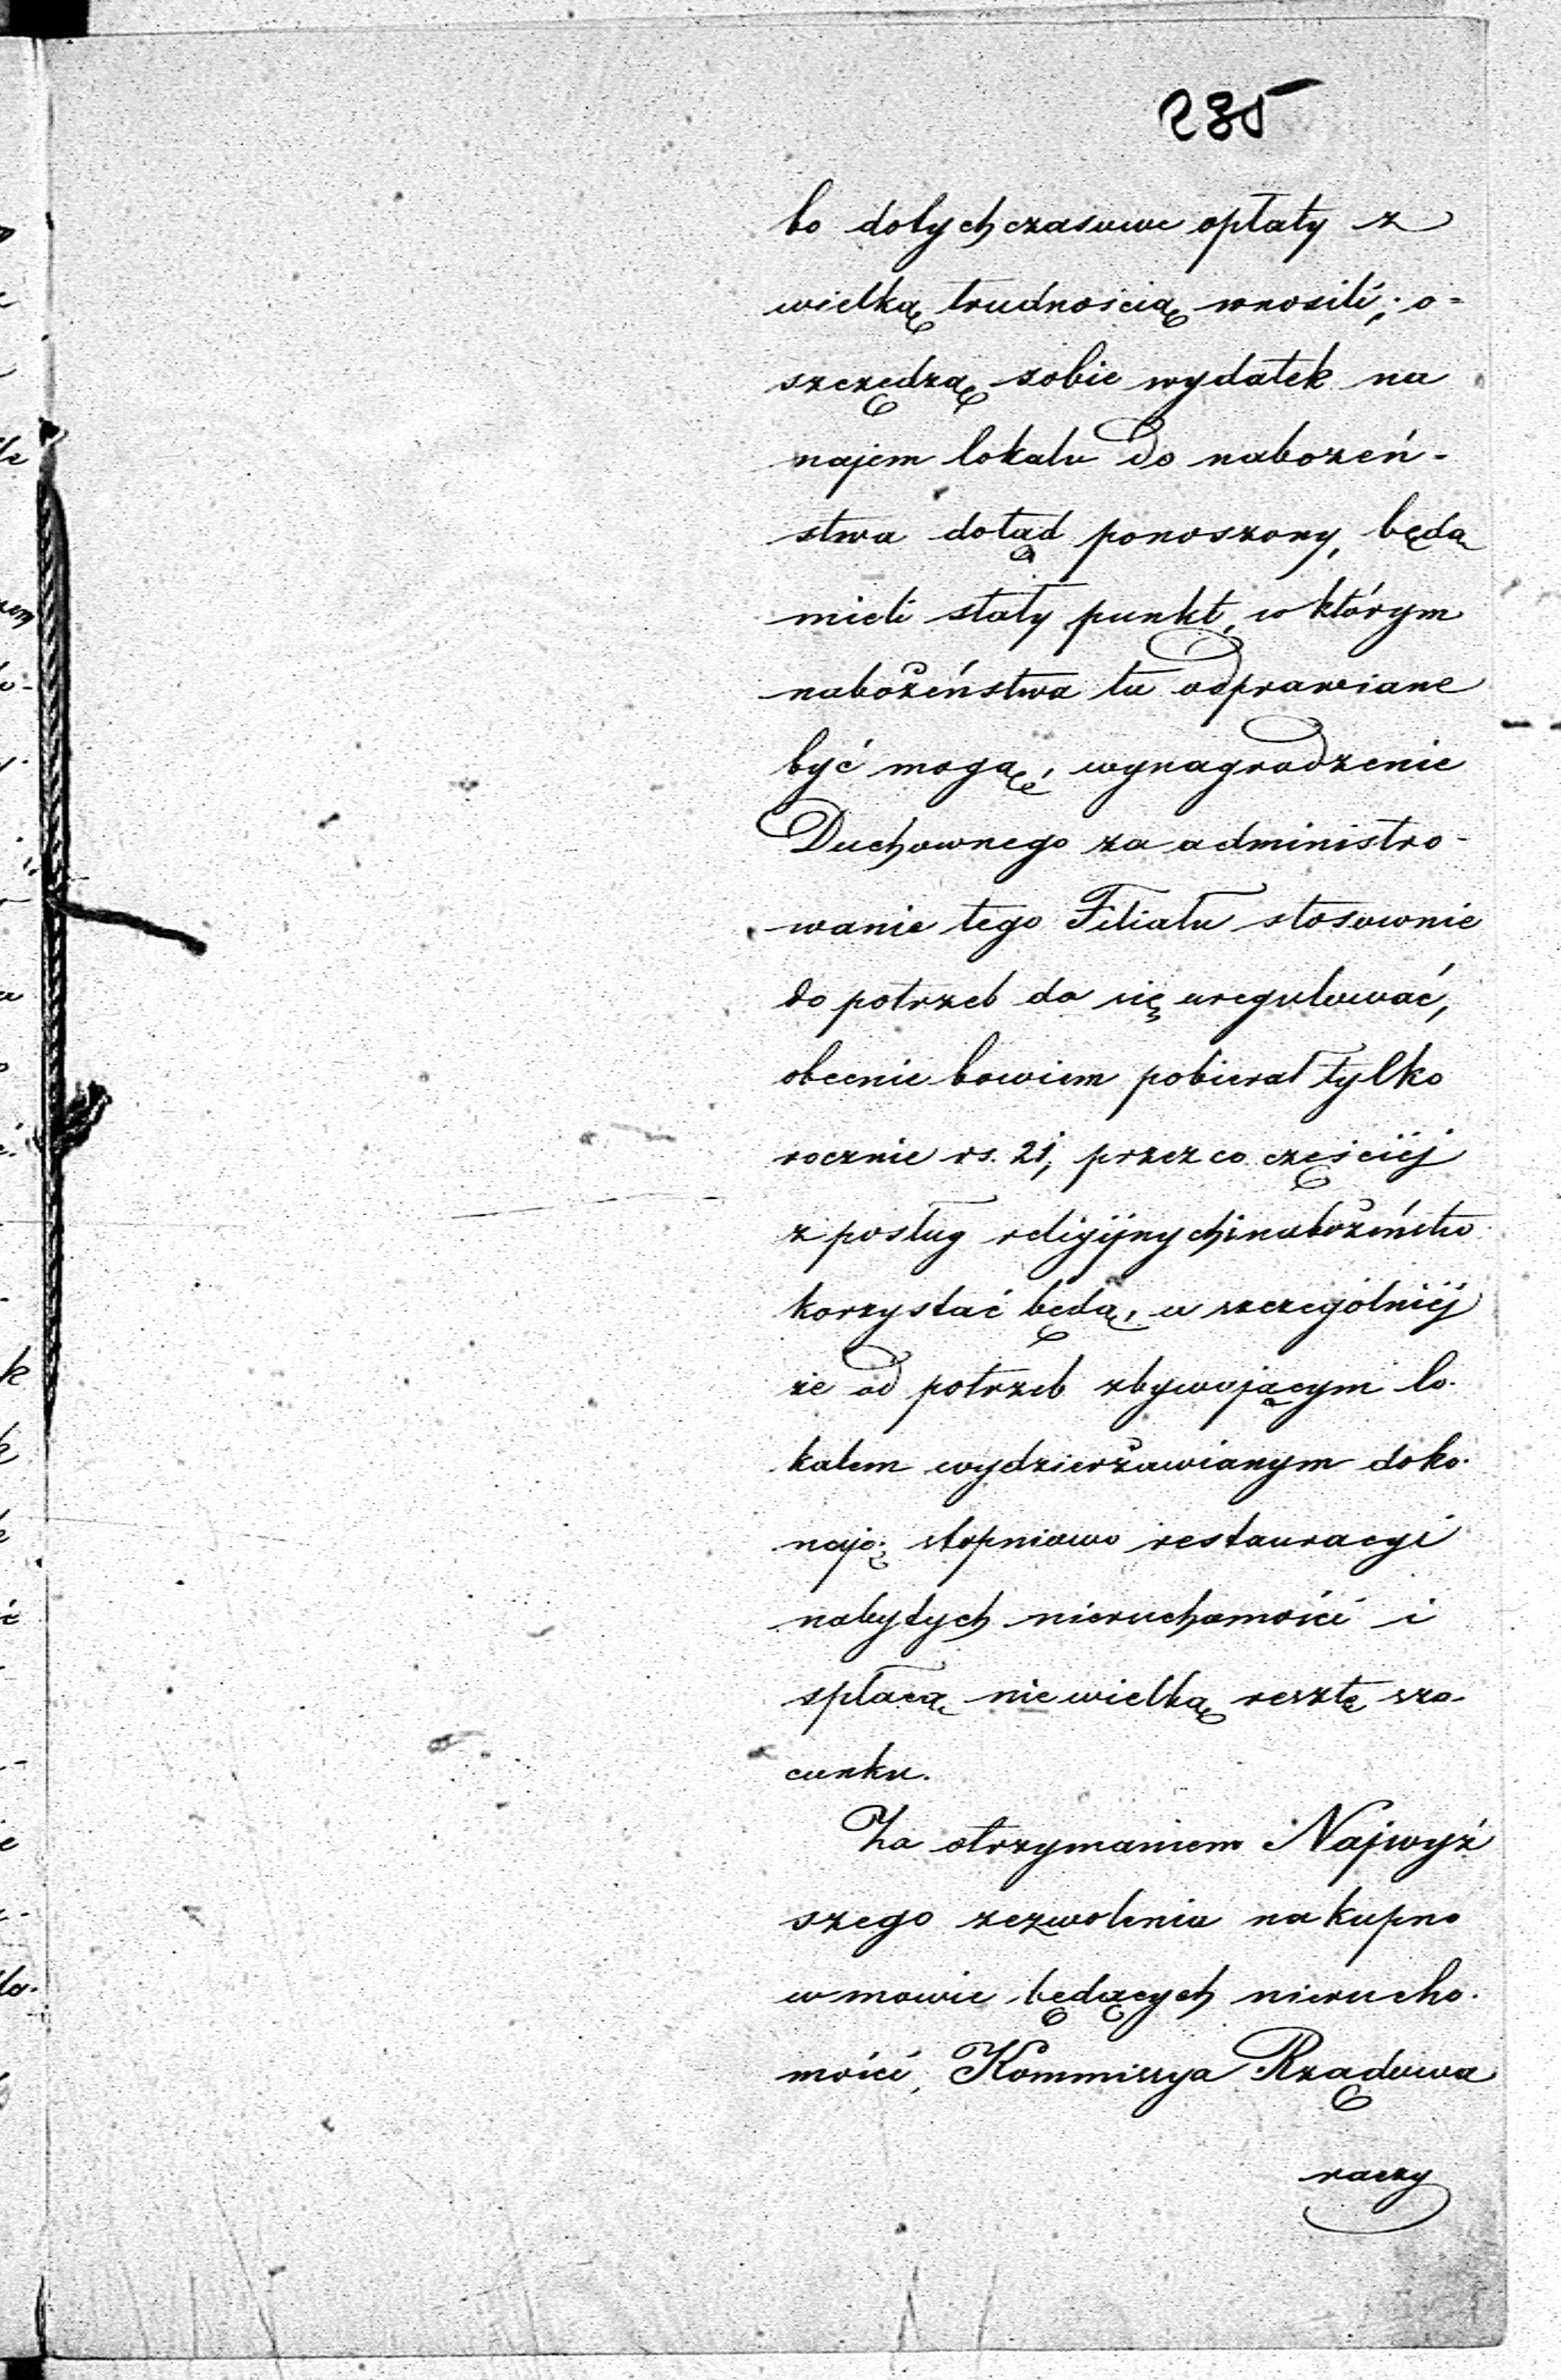 285
bo dotychczasowe opłaty z
wielką trudnością wnosili; o=
szczędzą sobie wydatek na
najem lokalu do nabożeń-
stwa dotąd ponoszony, będą
mieli stały punkt, w którym
nabożeństwa tu odprawiane
być mogą, wynagrodzenie
Duchownego za administro-
wanie tego Filiału stosownie
do potrzeb da się uregulować,
obecnie bowiem pobierał tylko
rocznie rs. 21, przez co częściéj
z posług religijnych i nabożeństw
korzystać będą, a szczególniéj
że od potrzeb zbywającym lo-
kalem wydzierżawianym doko-
nają stopniowo restauracyi
nabytych nieruchomości i
spłacą niewielką resztę sza-
cunku.
Za otrzymaniem Najwyż
szego zezwolenia na kupno
w mowie będących nierucho-
mości, Kommissya Rządowa
raczy